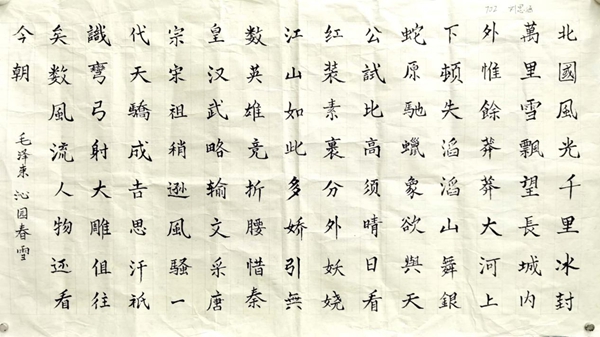 北國風光千里冰封
萬里雪飄望長城内
外惟餘莽莽大河上
下頓失滔滔山舞銀
蛇原馳蠟象欲與天
公試比高須晴日看
红装素裹分外妖娆
江山如此多嬌引無
数英雄竞折腰惜秦
皇汉武略输文采唐
宗宋祖稍逊風騷一
代天驕成吉思汗祇
識彎弓射大雕俱往
矣数風流人物还看
今朝
毛泽东 沁园春雪